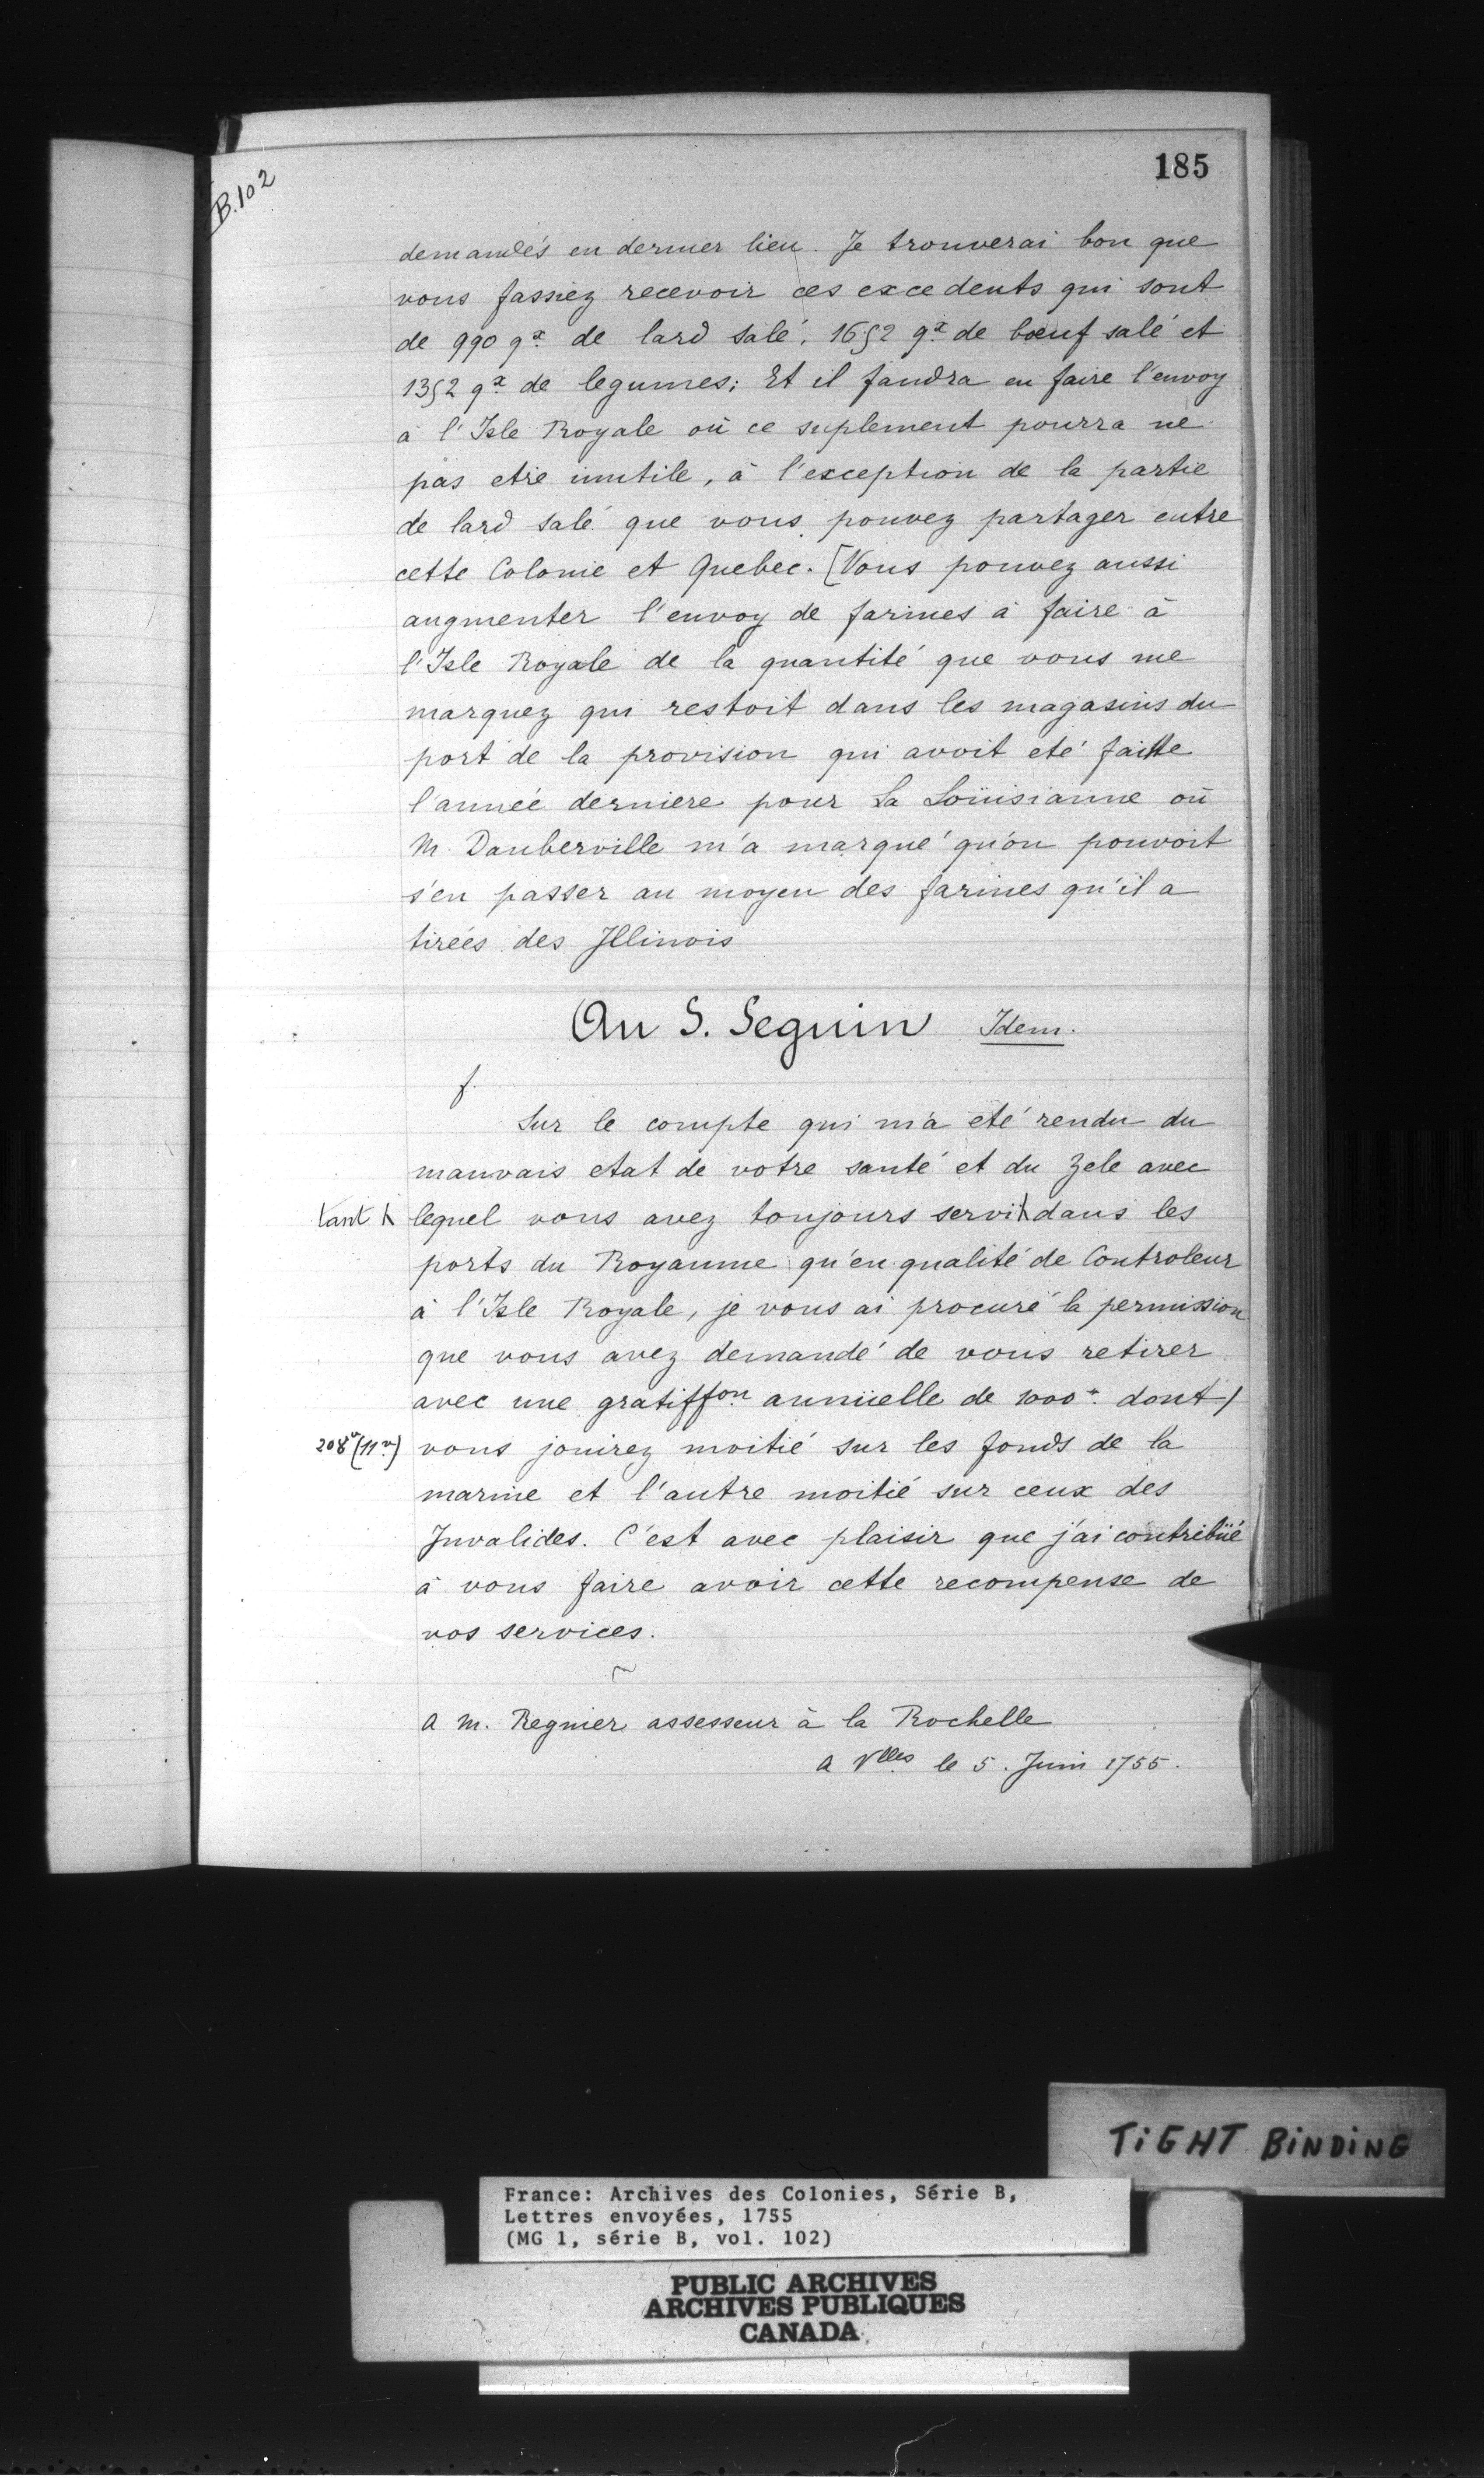 185
B.102
demandés en dernier lieu. Je trouverai bon que
vous fassiez recevoir ces excedents qui sont
de 990 qx de lard salé, 1652 qx de bœuf salé et
1352 qx de legumes; Et il faudra en faire l'envoy
à l'Isle Royale où ce suplement pourra ne
pas etre inutile, à l'exception de la partie
de lard salé que vous pouvez partager entre
cette Colonie et Quebec. [Vous pouvez aussi
augmenter l'envoy de farines à faire à
l'Isle Royale de la quantité que vous me
marquez qui restoit dans les magasins du
port de la provision qui avoit eté faitte
l'année derniere pour La Loüisianne où
M. Dauberville m'a marqué qu'on pouvoit
s'en passer au moyen des farines qu'il a
tirées des Illinois
Au S. Seguin Idem.
f.
Sur le compte qui m'a eté rendu du
mauvais etat de votre santé et du Zele avec
tant λ lequel vous avez toujours servi λ dans les
ports du Royaume qu'en qualité de Controleur
à l'Isle Royale, je vous ai procuré la permission
que vous avez demandé de vous retirer
avec une gratiffon annüelle de 1000# dont /
208v (11v) vous jouirez moitié sur les fonds de la
marine et l'autre moitié sur ceux des
Invalides. C'est avec plaisir que j'ai contribüé
à vous faire avoir cette recompense de
vos services.
~
A M. Regnier assesseur à la Rochelle
A Vlles le 5. Juin 1755.
TiGHT BiNDiNG
France: Archives des Colonies, Série B,
Lettres envoyées, 1755
(MG 1, série B, vol. 102)
PUBLIC ARCHIVES
ARCHIVES PUBLIQUES
CANADA